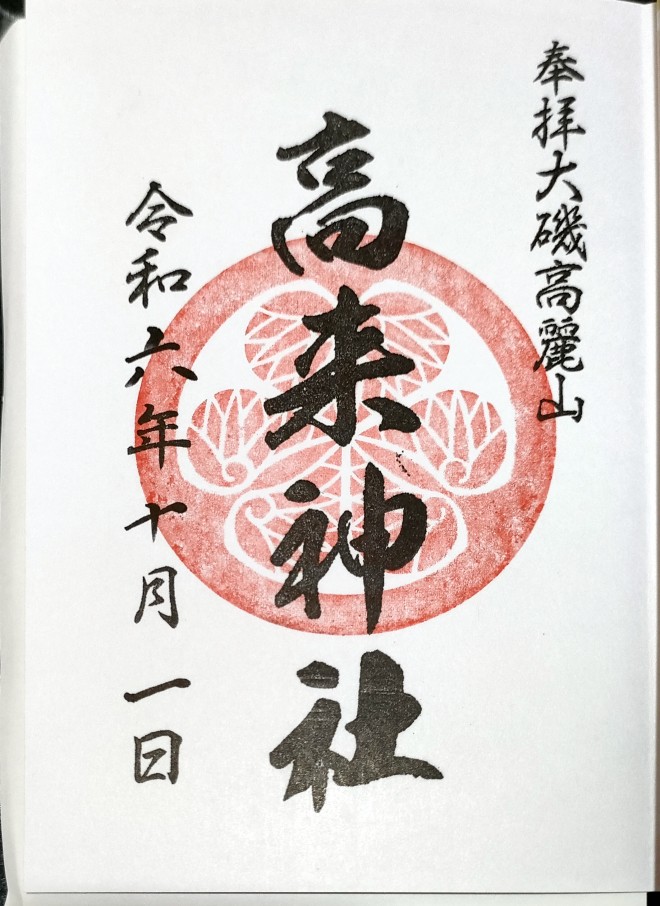 奉拝大磯高麗山
高来神社
令和六年十月一日